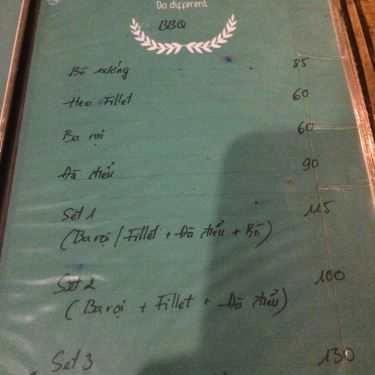 Do different
BBQ
Bò nướng 85
Heo Fillet 60
Ba rọi 60
Đà điểu 90
Set 1 115
(Ba rọi / Fillet + Đà điểu + Bò)
Set 2 100
(Ba rọi + Fillet + Đà điểu)
Set 3 130